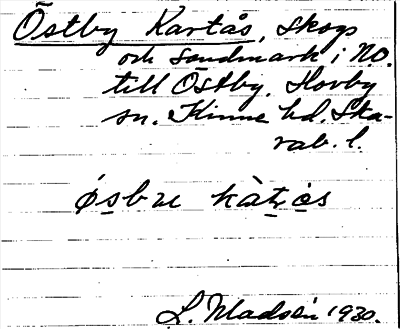 Östby Kartås, Skogs
och Sandmark i NO.
till Östby. Hovby
sn. Kinne hd. Ska-
rab. l.
L. Madsén 1930.